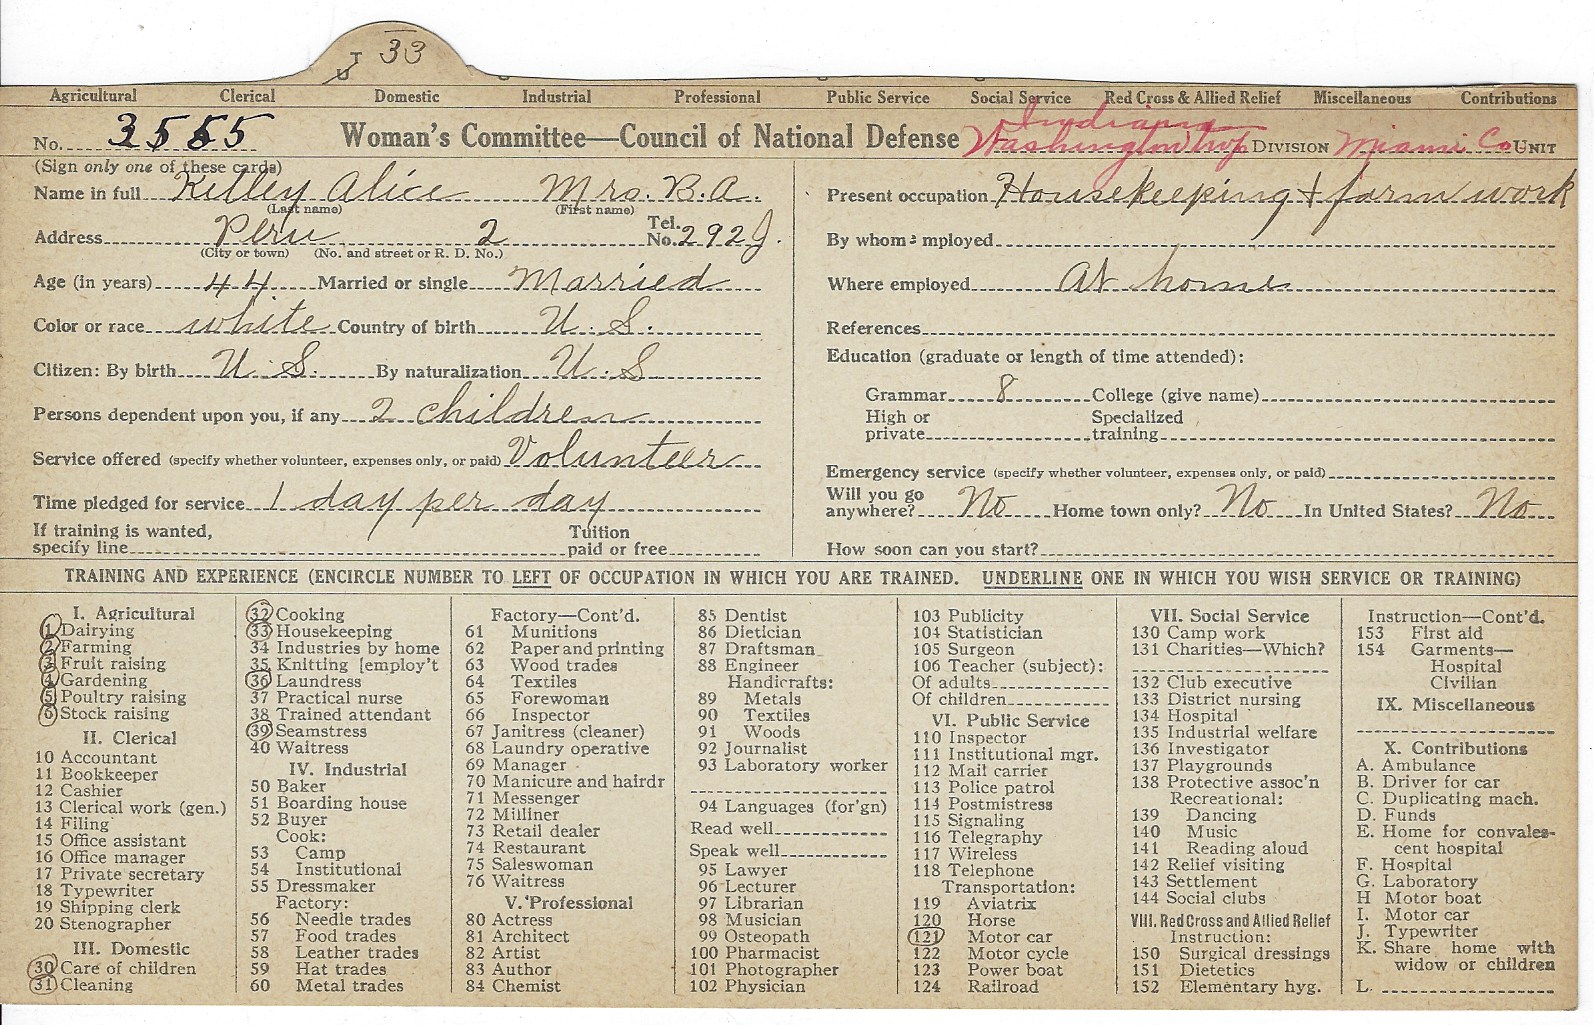 T 33
U
Agricultural Clerical Domestic Industrial Professional Public Service Social Service Red Cross & Allied Relief Miscellaneous Contributions
No. 3555 Woman's Committee—Council of National Defense Indiana Washington Twp DIVISION Miami Co UNIT
(Sign only one of these cards)
Name in full Kelley Alice Mrs. B. A.
(Last name) (First name)
Address Peru 2 Tel. No. 292 J.
(City or town) (No. and street or R. D. No.)
Age (in years) 44 Married or single Married
Color or race white Country of birth U. S.
Citizen: By birth U. S. By naturalization U. S
Persons dependent upon you, if any 2 children
Service offered (specify whether volunteer, expenses only, or paid) Volunteer
Time pledged for service 1 day per day
If training is wanted, specify line Tuition paid or free
Present occupation Housekeeping + farm work
By whom employed
Where employed At home
References
Education (graduate or length of time attended):
Grammar 8 College (give name)
High or private Specialized training
Emergency service (specify whether volunteer, expenses only, or paid)
Will you go anywhere? No Home town only? No In United States? No
How soon can you start?
TRAINING AND EXPERIENCE (ENCIRCLE NUMBER TO LEFT OF OCCUPATION IN WHICH YOU ARE TRAINED. UNDERLINE ONE IN WHICH YOU WISH SERVICE OR TRAINING)
I. Agricultural
1 Dairying
2 Farming
3 Fruit raising
4 Gardening
5 Poultry raising
6 Stock raising
II. Clerical
10 Accountant
11 Bookkeeper
12 Cashier
13 Clerical work (gen.)
14 Filing
15 Office assistant
16 Office manager
17 Private secretary
18 Typewriter
19 Shipping clerk
20 Stenographer
III. Domestic
30 Care of children
31 Cleaning
32 Cooking
33 Housekeeping
34 Industries by home
35 Knitting [employ't
36 Laundress
37 Practical nurse
38 Trained attendant
39 Seamstress
40 Waitress
IV. Industrial
50 Baker
51 Boarding house
52 Buyer
Cook:
53 Camp
54 Institutional
55 Dressmaker
Factory:
56 Needle trades
57 Food trades
58 Leather trades
59 Hat trades
60 Metal trades
Factory—Cont'd.
61 Munitions
62 Paper and printing
63 Wood trades
64 Textiles
65 Forewoman
66 Inspector
67 Janitress (cleaner)
68 Laundry operative
69 Manager
70 Manicure and hairdr
71 Messenger
72 Milliner
73 Retail dealer
74 Restaurant
75 Saleswoman
76 Waitress
V. Professional
80 Actress
81 Architect
82 Artist
83 Author
84 Chemist
85 Dentist
86 Dietician
87 Draftsman
88 Engineer
Handicrafts:
89 Metals
90 Textiles
91 Woods
92 Journalist
93 Laboratory worker
94 Languages (for'gn)
Read well
Speak well
95 Lawyer
96 Lecturer
97 Librarian
98 Musician
99 Osteopath
100 Pharmacist
101 Photographer
102 Physician
103 Publicity
104 Statistician
105 Surgeon
106 Teacher (subject):
Of adults
Of children
VI. Public Service
110 Inspector
111 Institutional mgr.
112 Mail carrier
113 Police patrol
114 Postmistress
115 Signaling
116 Telegraphy
117 Wireless
118 Telephone
Transportation:
119 Aviatrix
120 Horse
121 Motor car
122 Motor cycle
123 Power boat
124 Railroad
VII. Social Service
130 Camp work
131 Charities—Which?
132 Club executive
133 District nursing
134 Hospital
135 Industrial welfare
136 Investigator
137 Playgrounds
138 Protective assoc'n
Recreational:
139 Dancing
140 Music
141 Reading aloud
142 Relief visiting
143 Settlement
144 Social clubs
VIII. Red Cross and Allied Relief
Instruction:
150 Surgical dressings
151 Dietetics
152 Elementary hyg.
Instruction—Cont'd.
153 First aid
154 Garments—
Hospital
Civilian
IX. Miscellaneous
X. Contributions
A. Ambulance
B. Driver for car
C. Duplicating mach.
D. Funds
E. Home for convales-
cent hospital
F. Hospital
G. Laboratory
H Motor boat
I. Motor car
J. Typewriter
K. Share home with
widow or children
L.